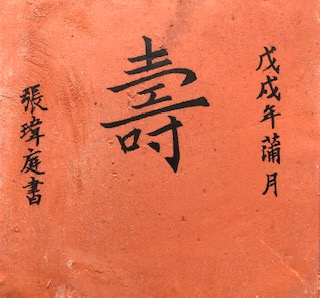 戊戌年蒲月
壽
張瑋庭書